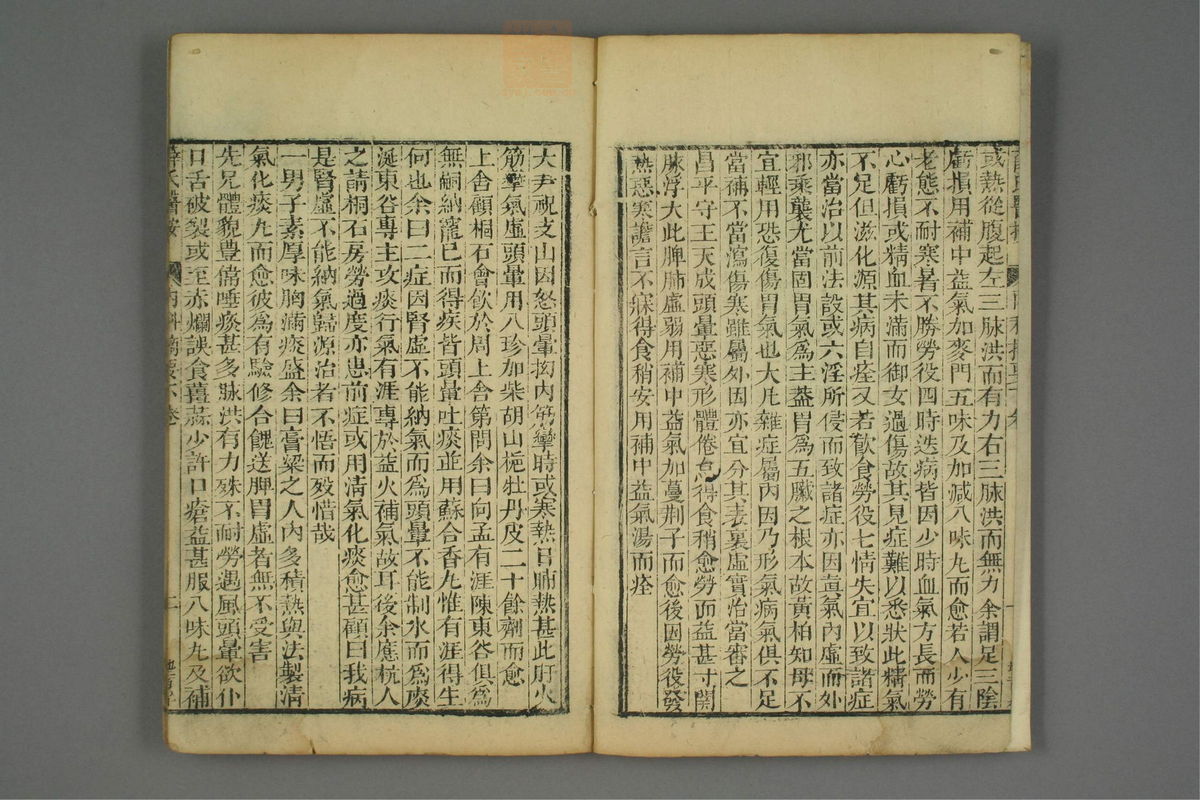 或熱從腹起左三脉洪而有力右三脉洪而無力余謂足三陰
虧損用補中益氣加麥門五味及加減八味丸而愈若人少有
老態不耐寒暑不勝勞役四時迭病皆因少時血氣方長而勞
心虧損或精血未滿而御女過傷故其見症難以悉狀此精氣
不足但滋化源其病自痊又若飲食勞役七情失宜以致諸症
亦當治以前法設或六淫所侵而致諸症亦因真氣內虛而外
邪乘襲尤當固胃氣爲主蓋胃爲五臟之根本故黃柏知母不
宜輕用恐復傷胃氣也大凡雜症屬內因乃形氣病氣俱不足
當補不當瀉傷寒雖屬外因亦宜分其表裏虛實治當審之
昌平守王天成頭暈惡寒形體倦怠得食稍愈勞而益甚寸關
脉浮大此脾肺虛弱用補中益氣加蔓荆子而愈後因勞役發
熱惡寒譫言不寐得食稍安用補中益氣湯而痊
大尹祝支山因怒頭暈拗內筋攣時或寒熱日晡熱甚此肝火
筋攣氣虛頭暈用八珍加柴胡山梔牡丹皮二十餘劑而愈
上舍顧桐石會飲於周上舍第問余曰向孟有涯陳東谷俱爲
無嗣納寵已而得疾皆頭暈吐痰並用蘇合香丸惟有涯得生
何也余曰二症因腎虛不能納氣而爲頭暈不能制水而爲痰
涎東谷專主攻痰行氣有涯專於益火補氣故耳後余應杭人
之請桐石房勞過度亦患前症或用清氣化痰愈甚顧曰我病
是腎虛不能納氣歸源治者不悟而歿惜哉
一男子素厚味胸滿痰盛余曰膏粱之人內多積熱與法製清
氣化痰丸而愈彼爲有驗修合餽送脾胃虛者無不受害
先兄體貌豊偉唾痰甚多脉洪有力殊不耐勞遇風頭暈欲仆
口舌破裂或至赤爛誤食薑蒜少許口瘡益甚服八味丸及補
薛氏醫按 內科摘要下卷 二